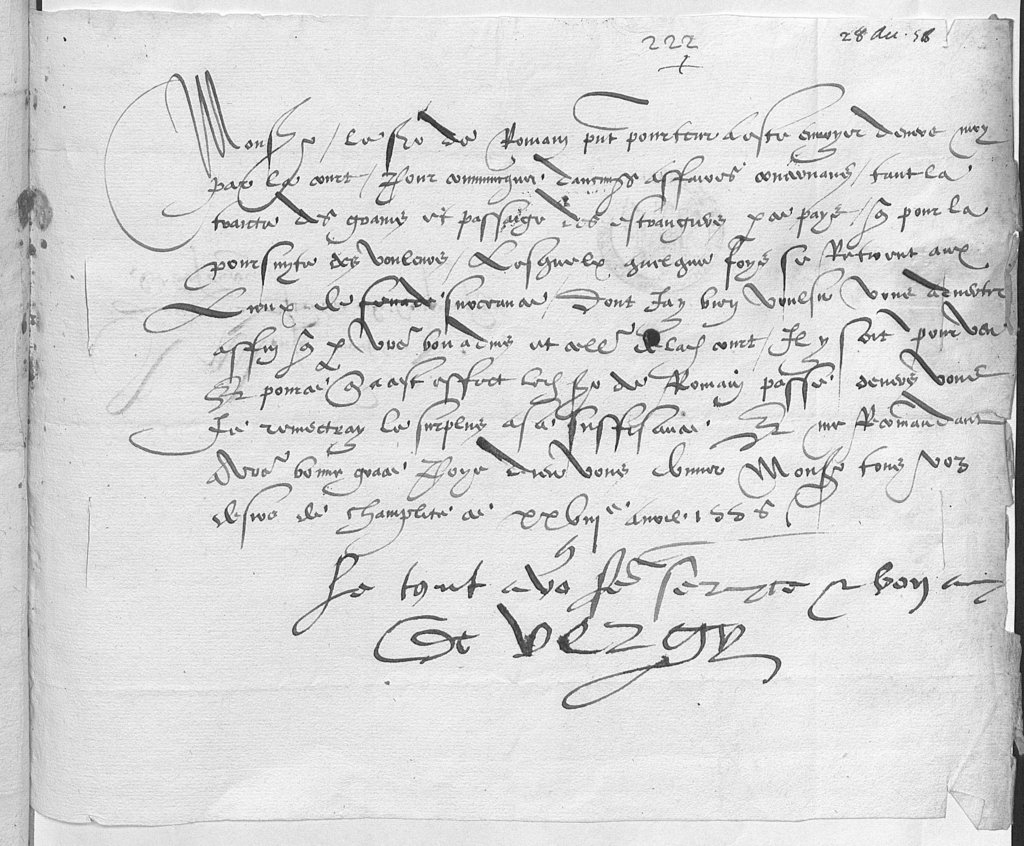 222
28 au. 58
Monsr / le sr de Romain pnt pourteur a este envoyer devers moy
par la court / Pour communicquer daucungs affaires concernans / tant la
traicte des grains et passaige des estrangiers par pays / q pour la
poursuyte des vouleurs / Lesquelx quelque foys se Retirent aux
Lieux de Dont Jay bien voulsu vous advertir
affin q p vre bon advis et celle de lad court / Il y soit pourveu
Et pource q a cest effect led sr de Romain passe devers vous
Je remectray le surplus a sa suffisance Et me Recomandant
a vre bonne grace Prye dieu vous donner Monsr tous voz
desirs de Champlite ce xxviiie
Le tout a vo servyce et bon amy
De vergy